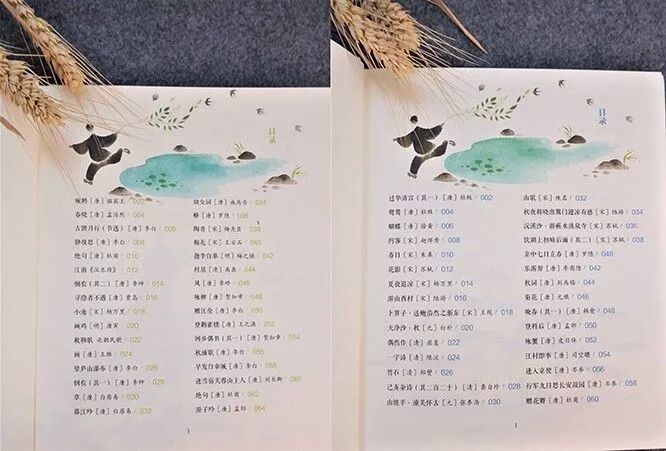 目录
咏鹅 [唐] 骆宾王 / 002
春晓 [唐] 孟浩然 / 004
古朗月行(节选) [唐] 李白 / 006
静夜思 [唐] 李白 / 008
绝句 [唐] 杜甫 / 010
江南《汉乐府》 / 012
悯农(其二) [唐] 李绅 / 014
寻隐者不遇 [唐] 贾岛 / 016
小池 [宋] 杨万里 / 018
画鸡 [明] 唐寅 / 020
敕勒歌 北朝民歌 / 022
画 [唐] 王维 / 024
望庐山瀑布 [唐] 李白 / 026
悯农(其一) [唐] 李绅 / 028
草 [唐] 白居易 / 030
暮江吟 [唐] 白居易 / 032
蜂 [唐] 罗隐 / 036
梅花 [宋] 王安石 / 040
村居 [清] 高鼎 / 044
风 [唐] 李峤 / 046
咏柳 [唐] 贺知章 / 048
赠汪伦 [唐] 李白 / 050
登鹳雀楼 [唐] 王之涣 / 052
回乡偶书(其一) [唐] 贺知章 / 054
秋浦歌 [唐] 李白 / 056
早发白帝城 [唐] 李白 / 058
逢雪宿芙蓉山主人 [唐] 刘长卿 / 060
绝句 [唐] 杜甫 / 062
游子吟 [唐] 孟郊 / 064
1
目录
过华清宫(其一) [唐] 杜牧 / 002
鸳鸯 [唐] 杜牧 / 004
蝴蝶 [唐] 徐夤 / 006
约客 [宋] 赵师秀 / 008
花影 [宋] 苏轼 / 012
夏夜追凉 [宋] 杨万里 / 014
游山西村 [宋] 陆游 / 016
卜算子·送鲍浩然之浙东 [宋] 王观 / 018
天净沙·秋 [元] 白朴 / 020
偶然作 [清] 屈复 / 022
一字诗 [清] 陈沆 / 024
竹石 [清] 郑燮 / 026
己亥杂诗(其二百二十) [清] 龚自珍 / 028
山坡羊·潼关怀古 [元] 张养浩 / 030
山歌 [宋] 佚名 / 032
秋夜将晓出篱门迎凉有感 [宋] 陆游 / 034
浣溪沙·游蕲水清泉寺 [宋] 苏轼 / 036
饮湖上初晴后雨(其二) [宋] 苏轼 / 038
京中正月七日立春 [唐] 罗隐 / 040
乐游原 [唐] 李商隐 / 042
菊花 [唐] 元稹 / 046
晚春(其一) [唐] 韩愈 / 048
登科后 [唐] 孟郊 / 050
咏蟹 [唐] 皮日休 / 052
江村即事 [唐] 司空曙 / 054
逢入京使 [唐] 岑参 / 056
行军九日思长安故园 [唐] 岑参 / 058
赠花卿 [唐] 杜甫 / 060
1